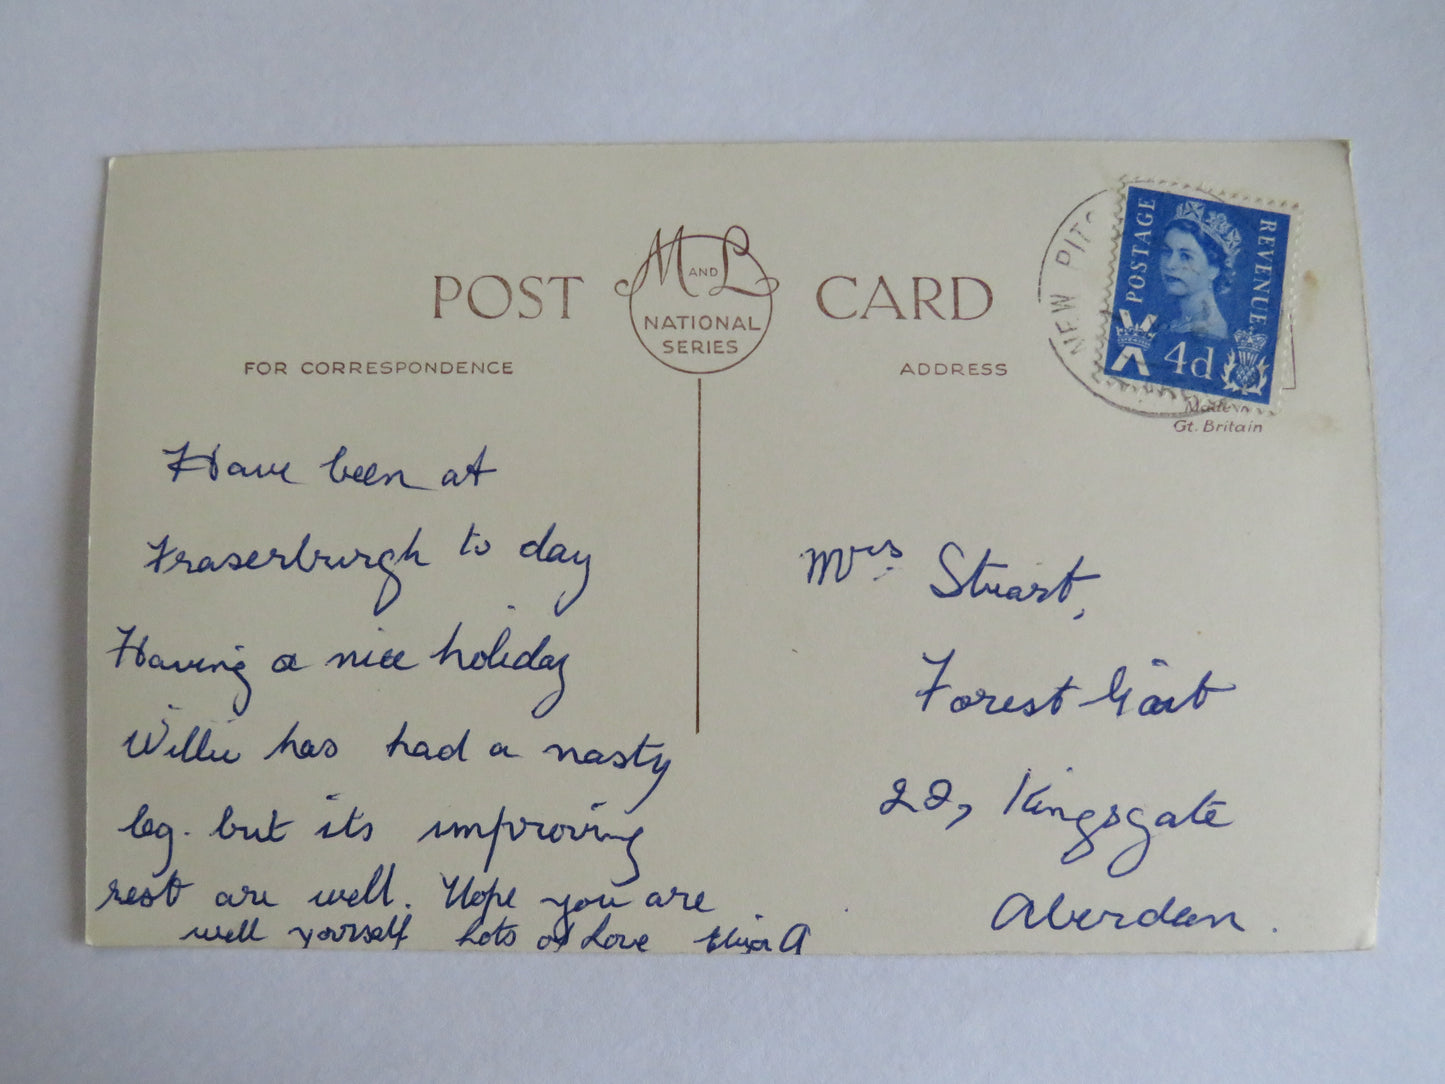 POST CARD
M AND L
NATIONAL
SERIES
FOR CORRESPONDENCE
ADDRESS
NEW PITS
POSTAGE
REVENUE
4d
Made in
Gt. Britain
Have been at
Fraserburgh to day
Having a nice holiday
Willie has had a nasty
leg. but its improving
rest are well. Hope you are
well yourself Lots of Love
Mrs Stuart,
Forest Gait
22, Kingsgate
Aberdeen.